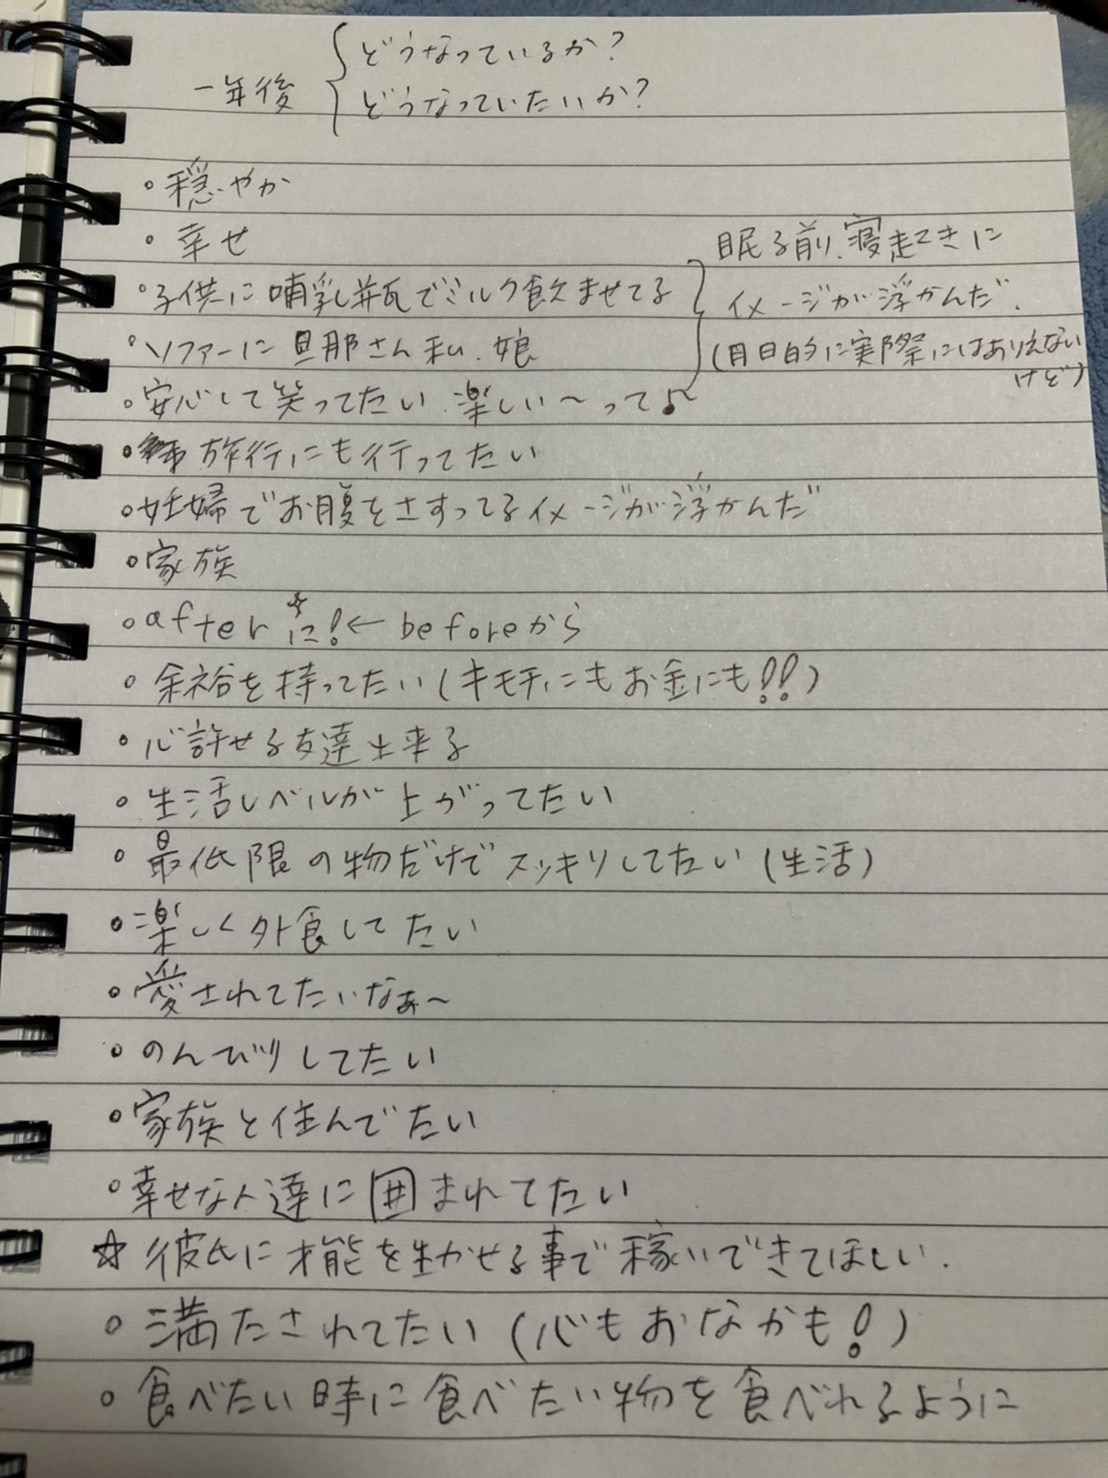 一年後
どうなっているか?
どうなっていたいか?
。穏やか
。幸せ
。子供に哺乳瓶でミルク飲ませてる
。ソファーに旦那さん私、娘
。安心して笑ってたい 楽しい〜って♪
眠る前、寝起きに
イメージが浮かんだ、
(月日的に実際にはありえない
けど)
。旅行にも行ってたい
。妊婦でお腹をさすってるイメージが浮かんだ
。家族
。afterに☆!←beforeから
。余裕を持ってたい(キモチにもお金にも!!)
。心許せる友達出来る
。生活レベルが上がってたい
。最低限の物だけでスッキリしてたい(生活)
。楽しく外食してたい
。愛されてたいなぁ〜
。のんびりしてたい
。家族と住んでたい
。幸せな人達に囲まれてたい
☆ 彼氏に才能を生かせる事で稼いできてほしい.
。満たされてたい(心もおなかも!)
。食べたい時に食べたい物を食べれるように